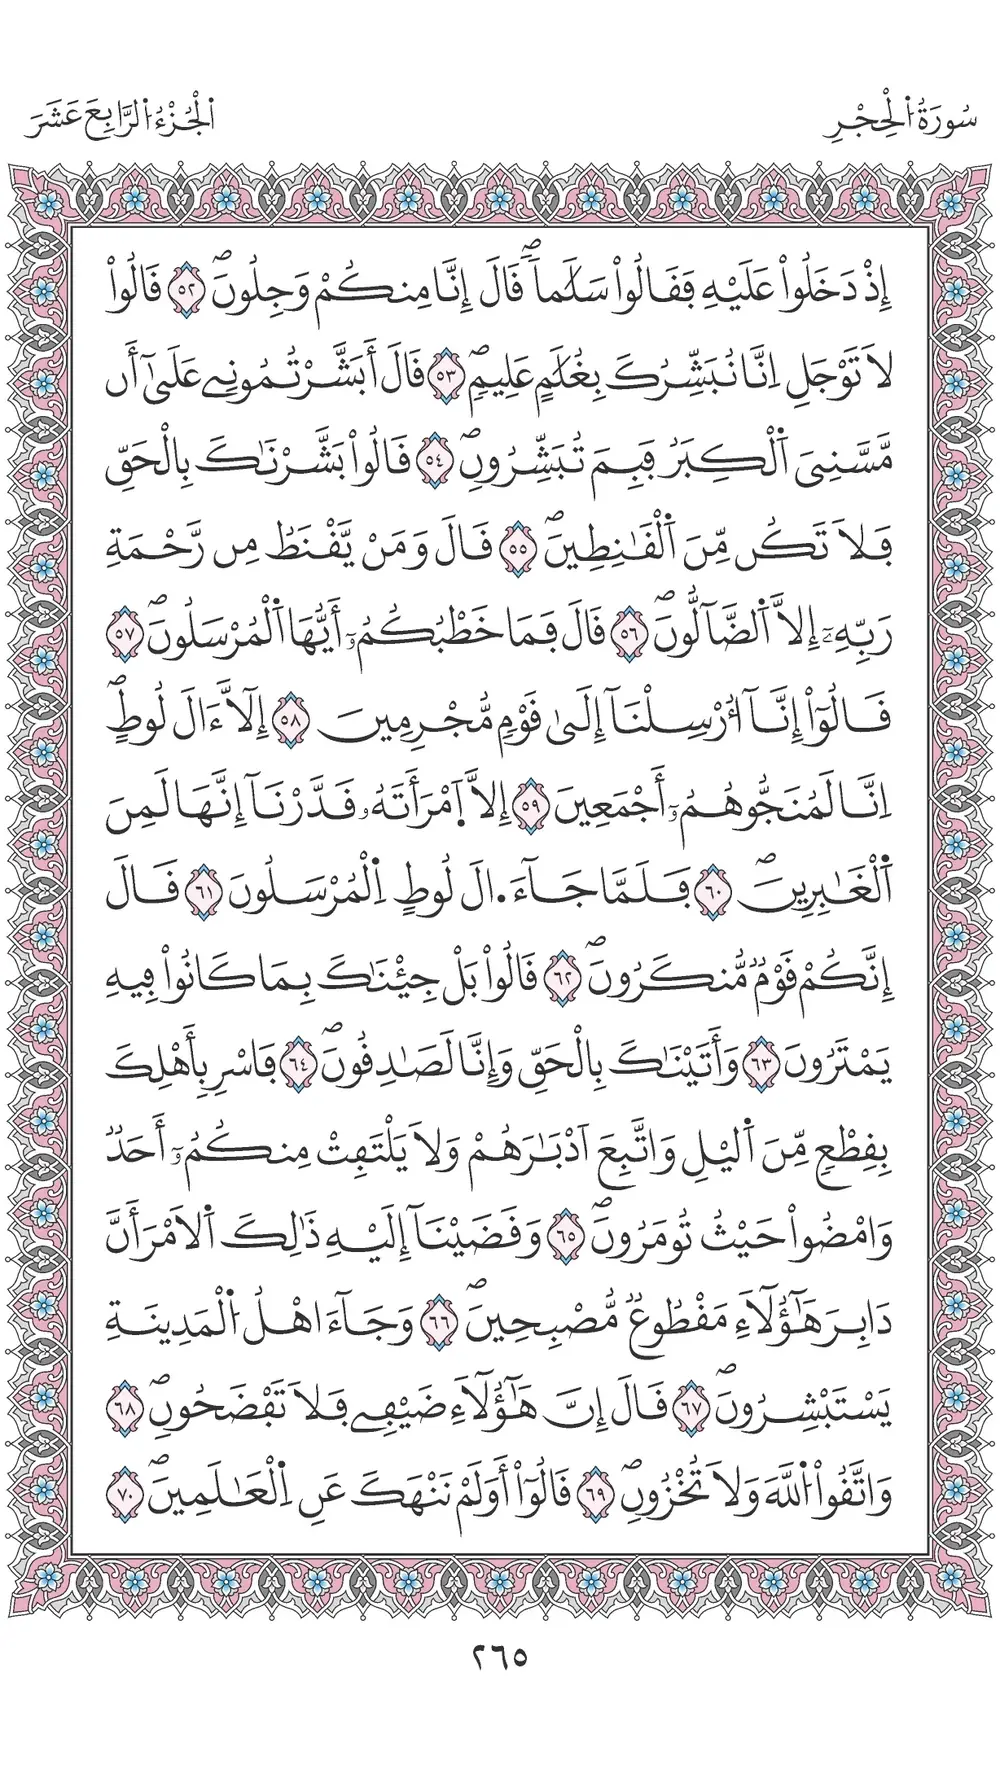 سُورَةُ اَ۬لْحِجْرِ
اَ۬لْجُزْءُ اَ۬لرَّابِعَ عَشَرَ
إِذْ دَخَلُواْ عَلَيْهِ فَقَالُواْ سَلَٰماٗۖ قَالَ إِنَّا مِنكُمْ وَجِلُونَۖ ٥٢ قَالُواْ
لَا تَوْجَلِ اِنَّا نُبَشِّرُكَ بِغُلَٰمٍ عَلِيمٖۖ ٥٣ قَالَ أَبَشَّرْتُمُونِے عَلَىٰٓ أَن
مَّسَّنِيَ اَ۬لْكِبَرُ فَبِمَ تُبَشِّرُونِۖ ٥٤ قَالُواْ بَشَّرْنَٰكَ بِالْحَقِّ
فَلَا تَكُن مِّنَ اَ۬لْقَٰنِطِينَۖ ٥٥ قَالَ وَمَنْ يَّقْنَطُ مِن رَّحْمَةِ
رَبِّهِۦٓ إِلَّا اَ۬لضَّآلُّونَۖ ٥٦ قَالَ فَمَا خَطْبُكُمُۥٓ أَيُّهَا اَ۬لْمُرْسَلُونَۖ ٥٧
قَالُوٓاْ إِنَّآ أُرْسِلْنَآ إِلَىٰ قَوْمٖ مُّجْرِمِينَ ٥٨ إِلَّآ ءَالَ لُوطٍۖ
اِنَّا لَمُنَجُّوهُمُۥٓ أَجْمَعِينَ ٥٩ إِلَّا اَ۪مْرَأَتَهُۥ قَدَّرْنَآ إِنَّهَا لَمِنَ
اَ۬لْغَٰبِرِينَۖ ٦٠ فَلَمَّا جَآءَ ا۬لَ لُوطٍ اِ۬لْمُرْسَلُونَ ٦١ قَالَ
إِنَّكُمْ قَوْمٞ مُّنكَرُونَۖ ٦٢ قَالُواْ بَلْ جِئْنَٰكَ بِمَا كَانُواْ فِيهِ
يَمْتَرُونَ ٦٣ وَأَتَيْنَٰكَ بِالْحَقِّ وَإِنَّا لَصَٰدِقُونَۖ ٦٤ فَاسْرِ بِأَهْلِكَ
بِقِطْعٖ مِّنَ اَ۬ليْلِ وَاتَّبِعَ اَدْبَٰرَهُمْ وَلَا يَلْتَفِتْ مِنكُمُۥٓ أَحَدٞ
وَامْضُواْ حَيْثُ تُومَرُونَۖ ٦٥ وَقَضَيْنَآ إِلَيْهِ ذَٰلِكَ اَ۬لَامْرَ أَنَّ
دَابِرَ هَٰٓؤُلَآءِ مَقْطُوعٞ مُّصْبِحِينَۖ ٦٦ وَجَآءَ اهْلُ اُ۬لْمَدِينَةِ
يَسْتَبْشِرُونَۖ ٦٧ قَالَ إِنَّ هَٰٓؤُلَآءِ ضَيْفِے فَلَا تَفْضَحُونِۖ ٦٨
وَاتَّقُواْ اُ۬للَّهَ وَلَا تُخْزُونِۖ ٦٩ قَالُوٓاْ أَوَلَمْ نَنْهَكَ عَنِ اِ۬لْعَٰلَمِينَۖ ٧٠
٢٦٥